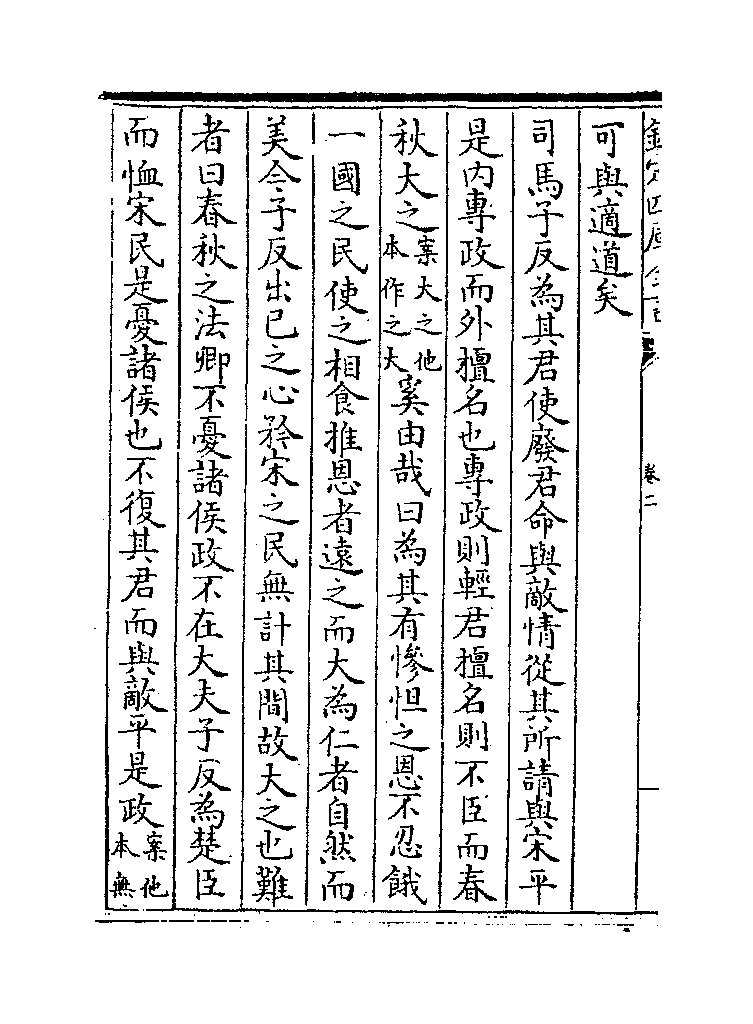 欽定四庫全書
卷二
可與適道矣
司馬子反為其君使廢君命與敵情從其所請與宋平
是内專政而外擅名也專政則輕君擅名則不臣而春
秋大之案大之他本作之大奚由哉曰為其有慘怛之恩不忍餓
一國之民使之相食推恩者遠之而大為仁者自然而
美今子反出已之心矜宋之民無計其間故大之也難
者曰春秋之法卿不憂諸侯政不在大夫子反為楚臣
而恤宋民是憂諸侯也不復其君而與敵平是政案他本無